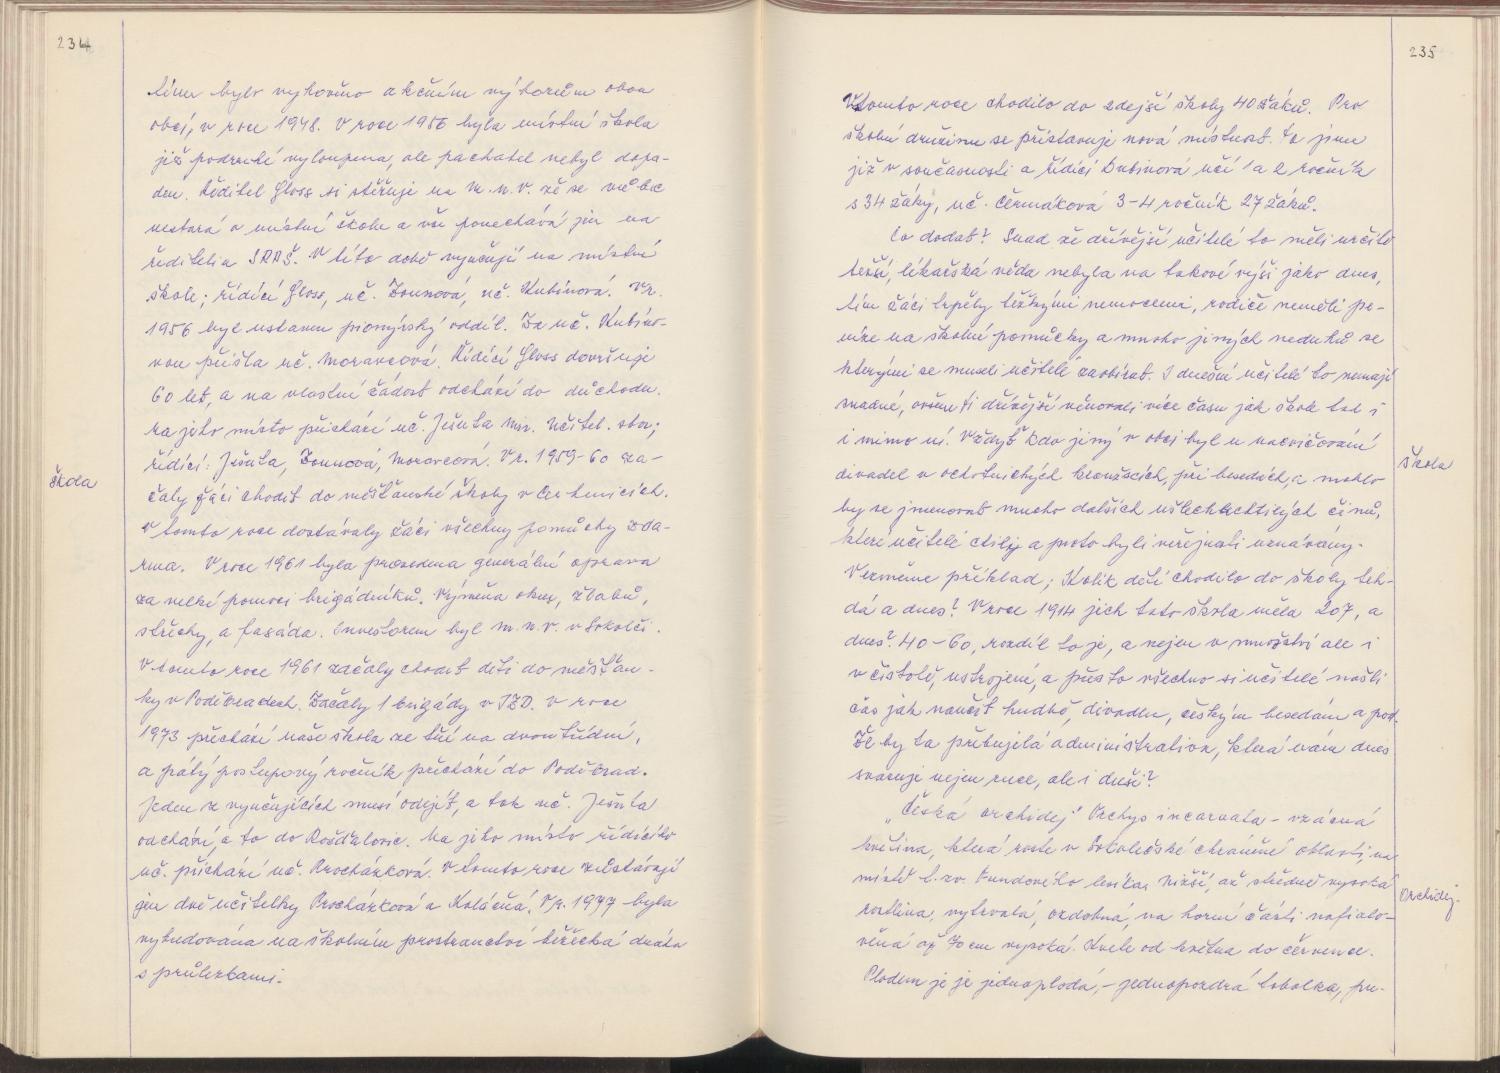 234
tímu bylo vyhověno akčním výborům obou
obcí, v roce 1948. V roce 1956 byla místní škola
již podruhé vyloupena, ale pachatel nebyl dopa-
den. Ředitel Gloss si stěžuje na M.N.V. že se vůbec
nestará o místní školu a vše ponechává jen na
řediteli a SRPŠ. V této době vyučují na místní
škole; řídící Gloss, uč. Zounová, uč. Kubínová. V r.
1956 byl ustaven pionýrský oddíl. Za uč. Kubíno-
vou přišla uč. Moravcová. Řídící Gloss dovršuje
60 let, a na vlastní žádost odchází do důchodu.
na jeho místo přichází uč. Ješuta Mir. Učitel. sbor;
řídící: Ješuta, Zounová, Moravcová. V r. 1959-60 za-
škola
čaly žáci chodit do měšťanské školy v Cerhenicích.
V tomto roce dostávaly žáci všechny pomůcky zda-
rma. V roce 1961 byla provedena generální oprava
za velké pomoci brigádníků. Výměna oken, žlabů,
střechy, a fasáda. Investorem byl M.N.V. v Sokolči.
V tomto roce 1961 začaly chodit děti do měšťan-
ky v Poděbradech. Začaly i brigády v JZD. V roce
1973 přechází naše škola ze tří na dvoutřídní,
a pátý postupový ročník přichází do Poděbrad.
Jeden z vyučujících musí odejít, a tak uč. Ješuta
odchází, a to do Rožďalovic. Na jeho místo řídícího
uč. přichází uč. Procházková. V tomto roce zůstávají
jen dvě učitelky Procházková a Kolářčná. V r. 1977 byla
vybudována na školním prostranství běžecká dráha
s průlezkami.
235
V tomto roce chodilo do zdejší školy 40 žáků. Pro
školní družinu se přistavuje nová místnost. To jsme
již v současnosti a řídící Dubinová učí 1 a 2 ročník
s 34 žáky, uč. Čermáková 3-4 ročník 27 žáků.
Co dodat? Snad že dřívější učitelé to měli určitě
težší, lékařská věda nebyla na takové výši jako dnes,
tím žáci trpěly těžkými nemocemi, rodiče neměli pe-
níze na školní pomůcky a mnoho jiných neduhů se
kterými se museli učitelé zaobírat. I dnešní učitelé to nemají
snadné, ovšem ti dřívější věnovali více času jak škole tak i
i mimo ní. Vždyť kdo jiný v obci byl u nacvičování
škola
divadel v ochotnických kroužcích, při besedách, a mohlo
by se jmenovat mnoho dalších ušlechtilých činů,
které učitelé ctily a proto byli veřejností uznávány.
Vezměme příklad; Kolik dětí chodilo do školy teh-
dá a dnes? V roce 1914 jich tato škola měla 207, a
dnes? 40-60, rozdíl to je, a nejen v množství ale i
v čistotě, ustrojení, a přesto všechno si učitelé našli
čas jak naučit hudbě, divadlu, českým besedám a pod.
Že by ta přebujelá administrativa, která nám dnes
svazuje nejen ruce, ale i duši?
„Česká orchidej" Orchys incarnata - vzácná
květina, která roste v Sokolečské chráněné oblasti na
místě t.zv. Fundového lesíka. Nižší, až středně vysoká
Orchidej.
rostlina, vytrvalá, ozdobná, na horní části nafialo-
vělá až 70 cm vysoká. Kvete od května do července.
Plodem je je jednoplodá, - jednopozdrá tobolka, pu-